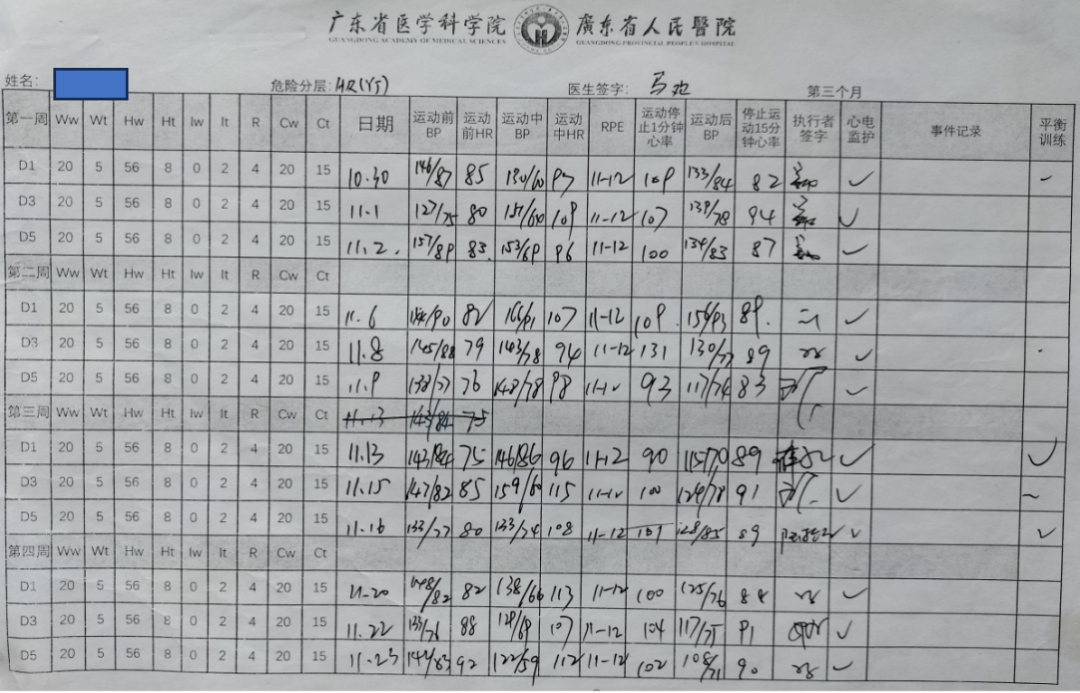 广东省医学科学院 廣东省人民醫院
GUANGDONG ACADEMY OF MEDICAL SCIENCES GUANGDONG PROVINCIAL PEOPLE'S HOSPITAL
姓名: 危险分层: 医生签字: 第三个月
第一周 Ww Wt Hw Ht Iw It R Cw Ct 日期 运动前BP 运动前HR 运动中BP 运动中HR RPE 运动停止1分钟心率 运动后BP 停止运动15分钟心率 执行者签字 心电监护 事件记录 平衡训练
D1 20 5 56 8 0 2 4 20 15 10.30 146/87 85 130/60 97 11-12 109 133/84 82 ✓ -
D3 20 5 56 8 0 2 4 20 15 11.1 127/75 80 109 11-12 107 139/78 94 ✓
D5 20 5 56 8 0 2 4 20 15 11.2. 157/89 83. 153/69 96 11-12 100 134/83 87 ✓
第二周 Ww Wt Hw Ht Iw It R Cw Ct
D1 20 5 56 8 0 2 4 20 15 11.6 82 107 11-12 109. 156/93 89. ✓
D3 20 5 56 8 0 2 4 20 15 11.8 145/88 79 143/78 94 11-12 131 130/77 89 ✓
D5 20 5 56 8 0 2 4 20 15 11.9 133/77 76 148/78 98 11-12 93 117/74 83 ✓
第三周 Ww Wt Hw Ht Iw It R Cw Ct 11.13 143/84 75
D1 20 5 56 8 0 2 4 20 15 11.13 143/84 75 146/86 96 11-12 90 115/70 89 ✓ ✓
D3 20 5 56 8 0 2 4 20 15 11.15 147/82 85 159/60 115 11-12 100 129/78 91 ✓ ~
D5 20 5 56 8 0 2 4 20 15 11.16 133/77 80 133/74 108 11-12 107 128/85 89 ✓ ✓
第四周 Ww Wt Hw Ht Iw It R Cw Ct
D1 20 5 56 8 0 2 4 20 15 11-20 148/82 82 138/66 113 11-12 100 125/76 84 ✓
D3 20 5 56 8 0 2 4 20 15 11.22 133/76 88 129/69 107 11-12 104 117/75 91 ✓
D5 20 5 56 8 0 2 4 20 15 11.23 92 122/59 112 11-12 102 108/71 90 ✓